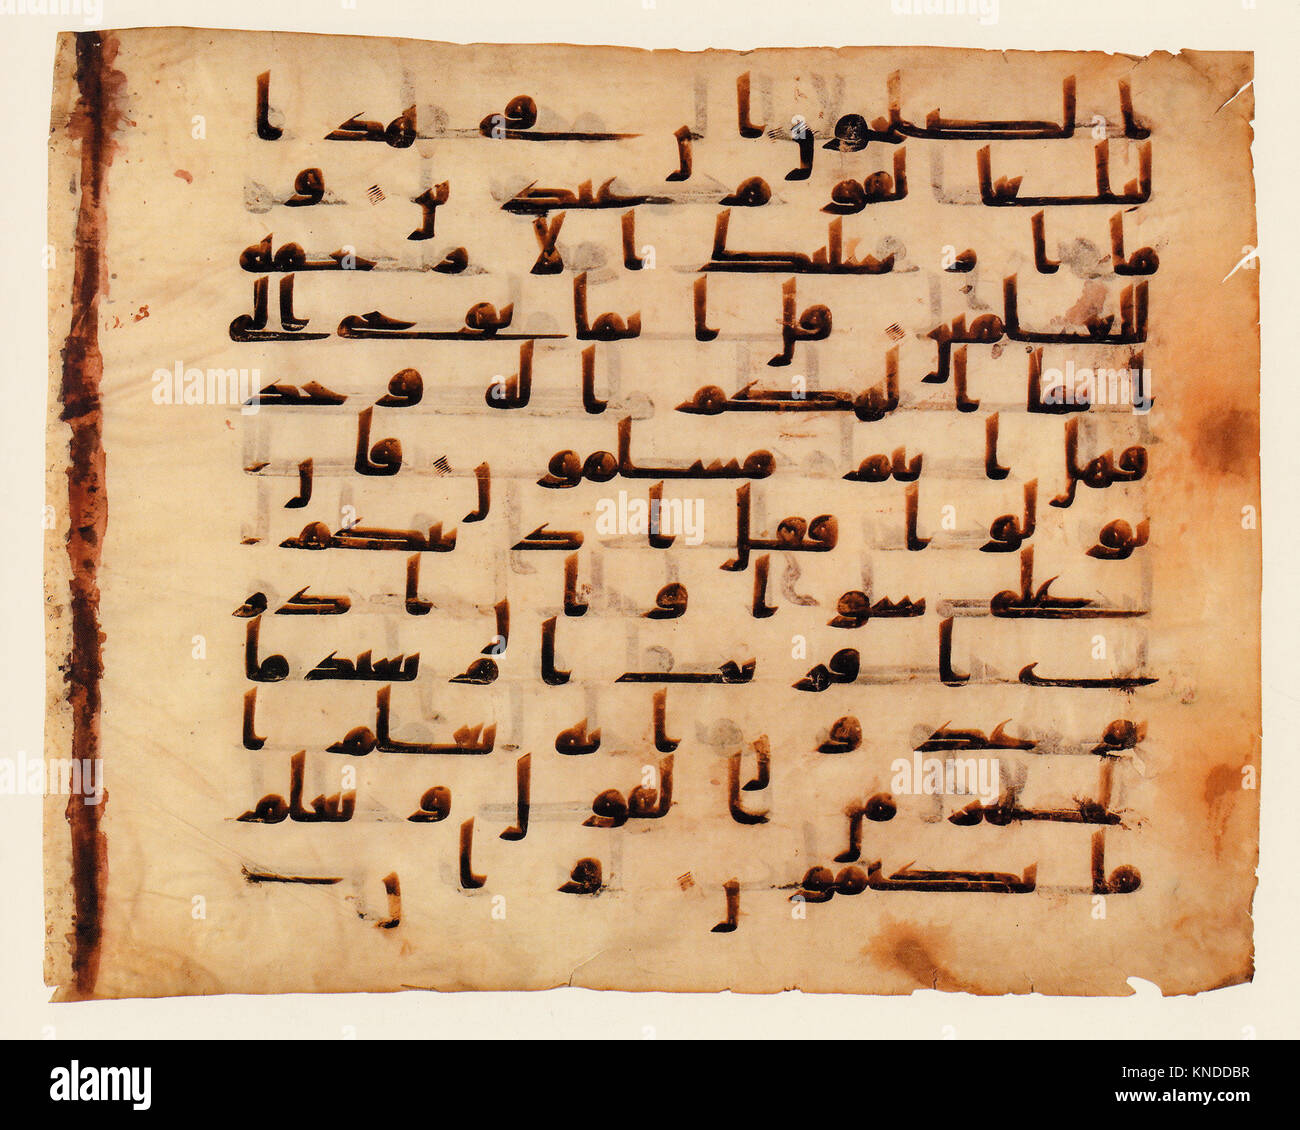 الصلحون ان في هذا
لبلغا لقوم عبدين و
ما ارسلنك الا رحمه
للعلمين قل انما يوحى الى
انما الهكم اله وحد
فهل انتم مسلمون فان
تولوا فقل اذنتكم
على سوا وان ادر
ى اقريب ام بعيد ما
توعدون انه يعلم ا
لجهر من القول ويعلم
ما تكتمون وان
alamy
Image ID: KNDDBR
www.alamy.com